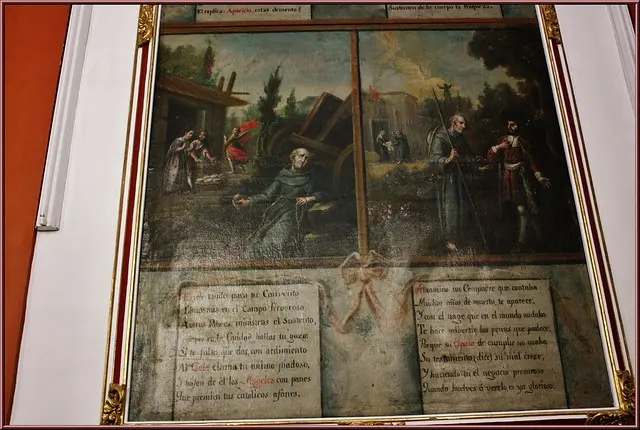 El replica: Aparicio, estas demente?
Sustento de tu cuerpo la
para tu Convento
Limosnas en el Campo fervoroso
A unos Pobres ministras el Sustento,
en tu Caridad hallas tu gozo:
falta que dar, con ardimiento
Al Cielo clama tu animo piadoso,
Y bajan de el los Angeles con panes
Que premien tus catolicos afanes.
un Compadre que contaba
Muchos años de muerto, te aparece,
Y con el trage que en el mundo usaba
Te hace advertir las penas que padece;
Porque su Esposa de cumplir no acaba
Su testamento (dice) su mal crece;
Y haciendo tu el negocio presuroso
Quando buelves á verlo, es ya glorioso.